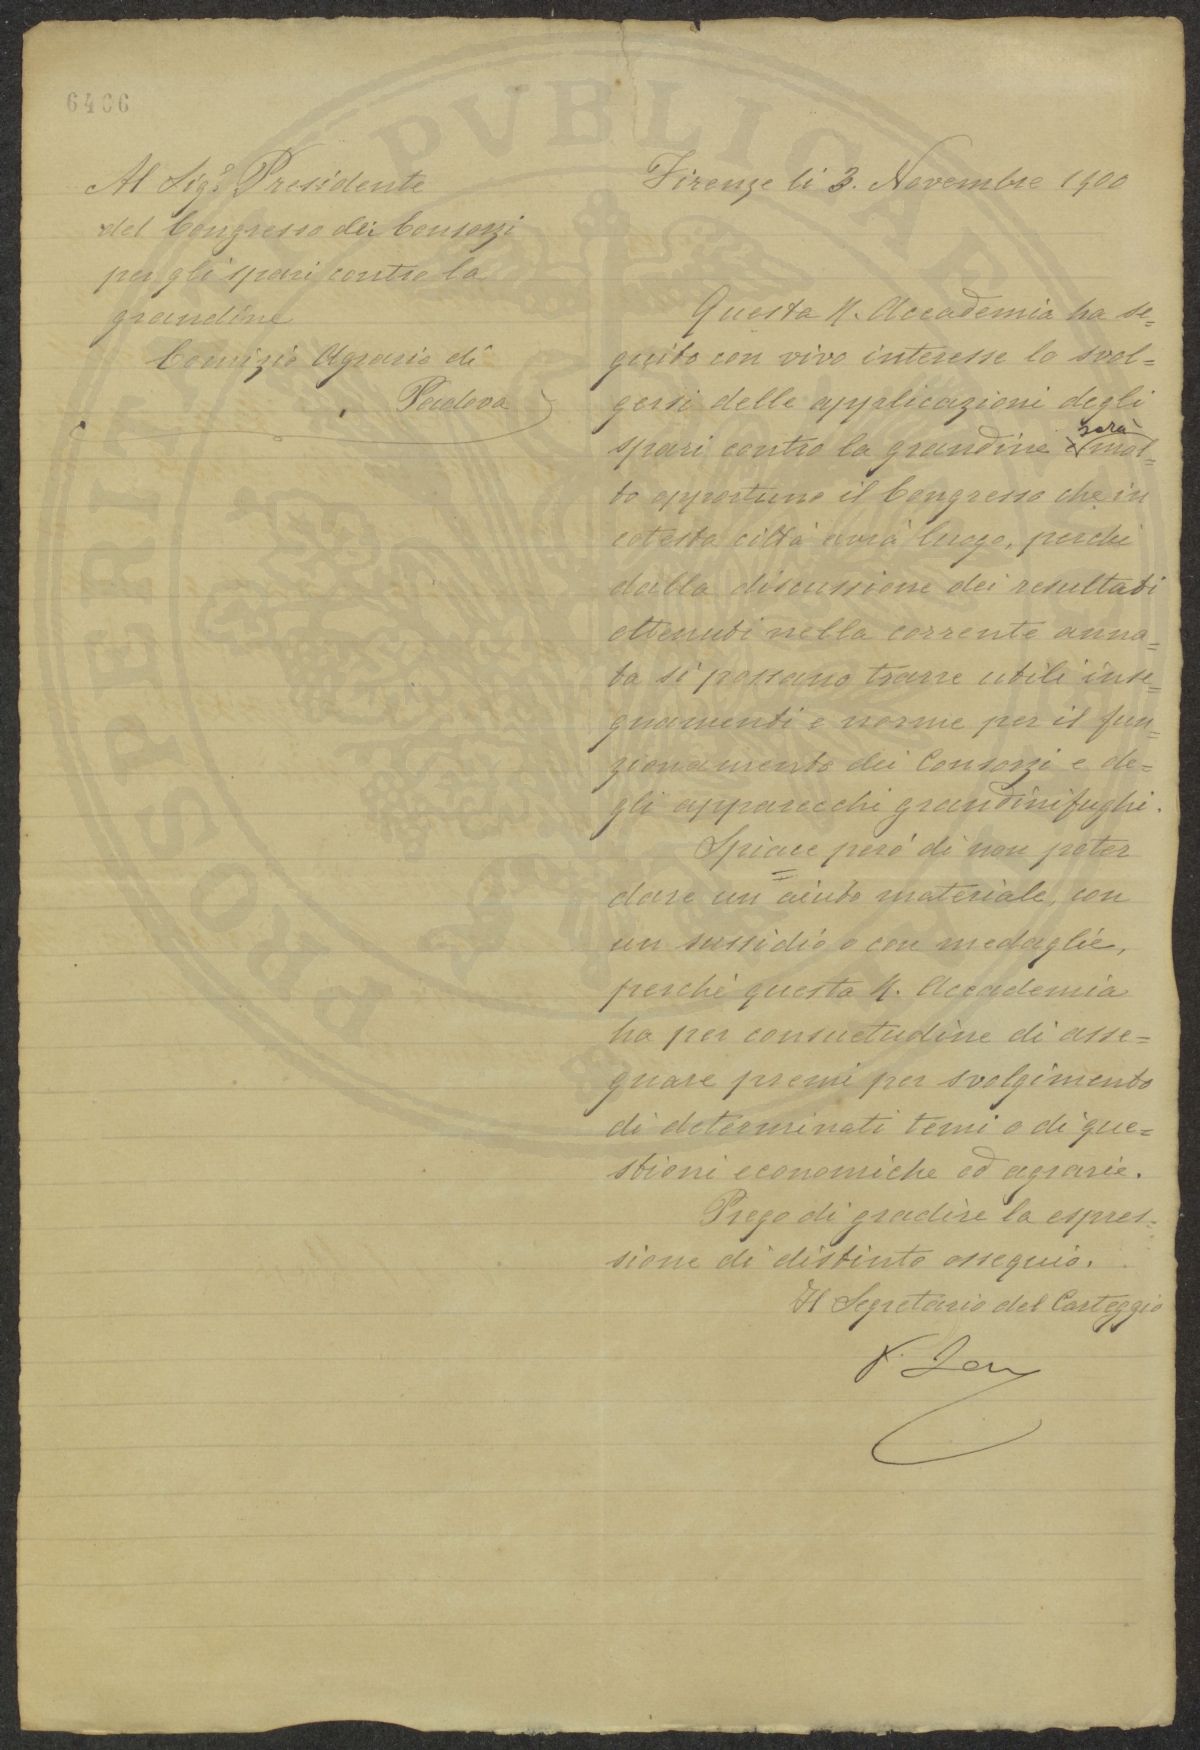 6406
Al Sigr Presidente
del Congresso dei Consorzi
per gli spari contro la
grandine
Comizio Agrario di
Padova
Firenze li 3. Novembre 1900
Questa R. Accademia ha se=
guito con vivo interesse lo svol=
gersi delle applicazioni degli
spari contro la grandine e sarà mol=
to opportuno il Congresso che in
cotesta città avrà luogo, perchè
dalla discussione dei resultati
ottenuti nella corrente anna=
ta si possano trarre utili inse=
gnamenti e norme per il fun=
zionamento dei Consorzi e de=
gli apparecchi grandinifughi.
Spiace però di non poter
dare un aiuto materiale, con
un sussidio o con medaglie,
perchè questa R. Accademia
ha per consuetudine di asse=
gnare premi per svolgimento
di determinati temi o di que=
stioni economiche od agrarie.
Prego di gradire la espres=
sione di distinto ossequio.
Il Segretario del Carteggio
PROSPERITATI PUBLICAE